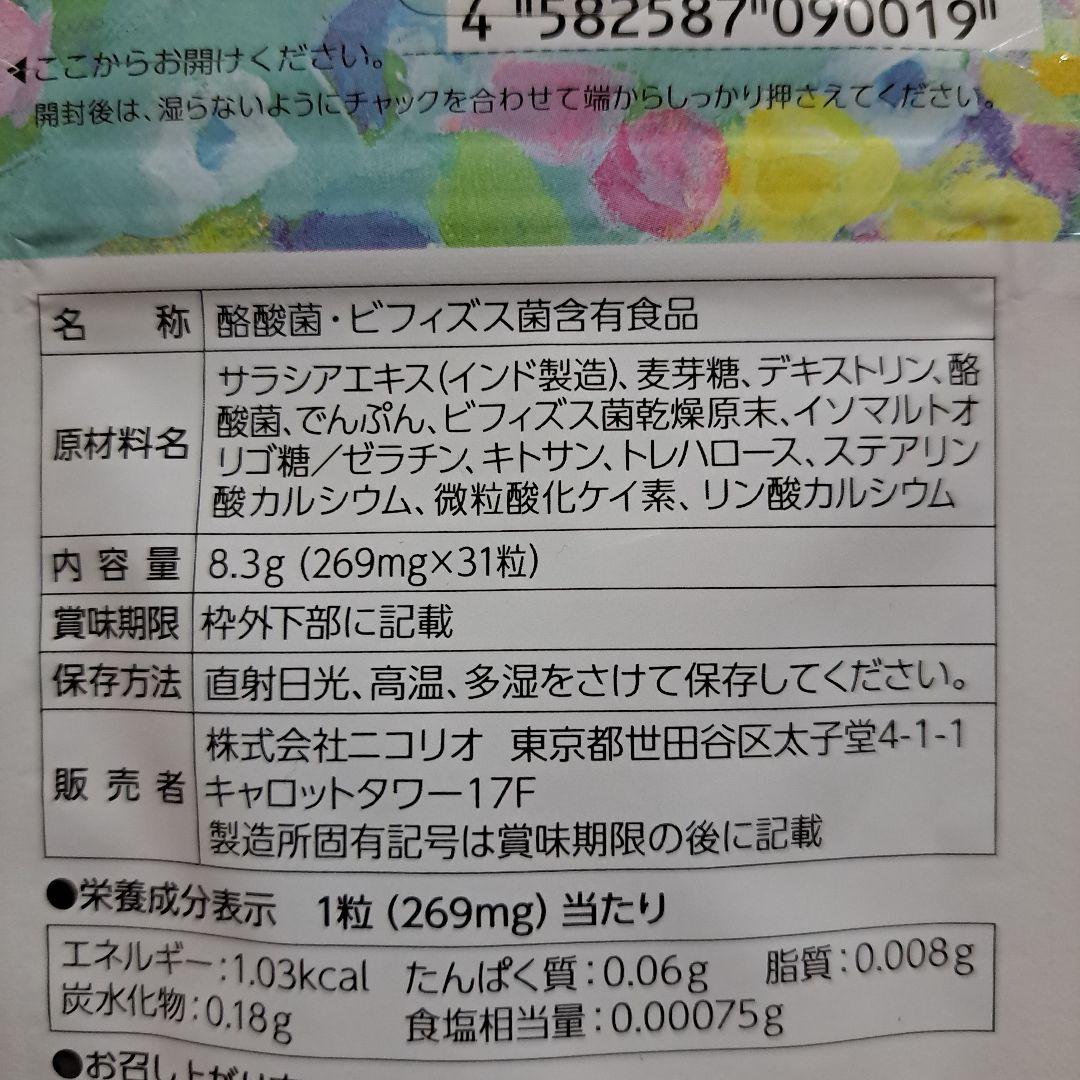 4 582587 090019
◀ここからお開けください。
開封後は、湿らないようにチャックを合わせて端からしっかり押さえてください。
名称 酪酸菌・ビフィズス菌含有食品
原材料名 サラシアエキス(インド製造)、麦芽糖、デキストリン、酪
酸菌、でんぷん、ビフィズス菌乾燥原末、イソマルトオ
リゴ糖／ゼラチン、キトサン、トレハロース、ステアリン
酸カルシウム、微粒酸化ケイ素、リン酸カルシウム
内容量 8.3g (269mg×31粒)
賞味期限 枠外下部に記載
保存方法 直射日光、高温、多湿をさけて保存してください。
販売者 株式会社ニコリオ 東京都世田谷区太子堂4-1-1
キャロットタワー17F
製造所固有記号は賞味期限の後に記載
●栄養成分表示 1粒 (269mg) 当たり
エネルギー:1.03kcal たんぱく質:0.06g 脂質:0.008g
炭水化物:0.18g 食塩相当量:0.00075g
●お召し上がり方